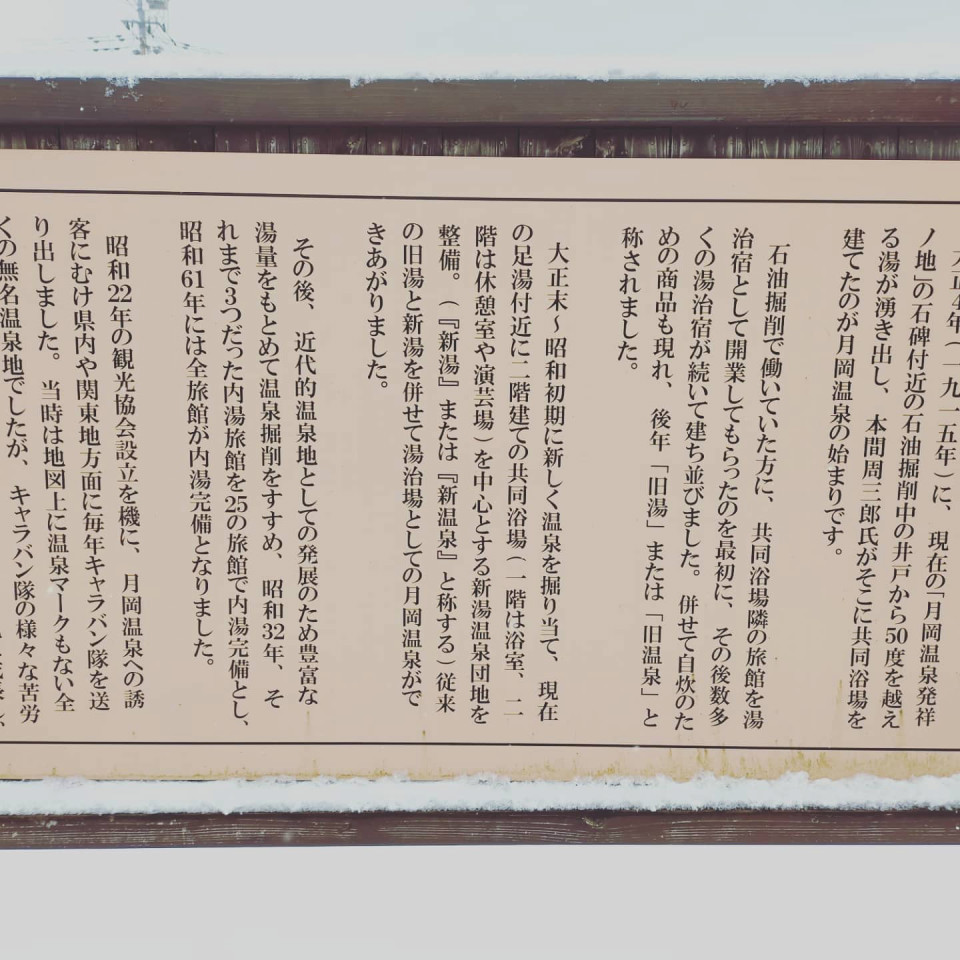 大正4年（一九一五年）に、現在の「月岡温泉発祥
ノ地」の石碑付近の石油掘削中の井戸から50度を越え
る湯が湧き出し、本間周三郎氏がそこに共同浴場を
建てたのが月岡温泉の始まりです。
石油掘削で働いていた方に、共同浴場隣の旅館を湯
治宿として開業してもらったのを最初に、その後数多
くの湯治宿が続いて建ち並びました。併せて自炊のた
めの商品も現れ、後年「旧湯」または「旧温泉」と
称されました。
大正末～昭和初期に新しく温泉を掘り当て、現在
の足湯付近に二階建ての共同浴場（一階は浴室、二
階は休憩室や演芸場）を中心とする新湯温泉団地を
整備。（『新湯』または『新温泉』と称する）従来
の旧湯と新湯を併せて湯治場としての月岡温泉がで
きあがりました。
その後、近代的温泉地としての発展のため豊富な
湯量をもとめて温泉掘削をすすめ、昭和32年、そ
れまで3つだった内湯旅館を25の旅館で内湯完備とし、
昭和61年には全旅館が内湯完備となりました。
昭和22年の観光協会設立を機に、月岡温泉への誘
客にむけ県内や関東地方面に毎年キャラバン隊を送
り出しました。当時は地図上に温泉マークもない全
くの無名温泉地でしたが、キャラバン隊の様々な苦労